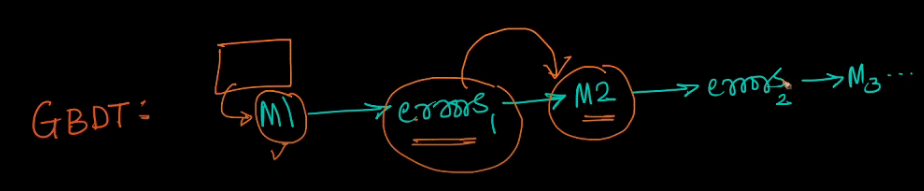 GBDT: M1 → errors₁ → M2 → errors₂ → M₃ ...